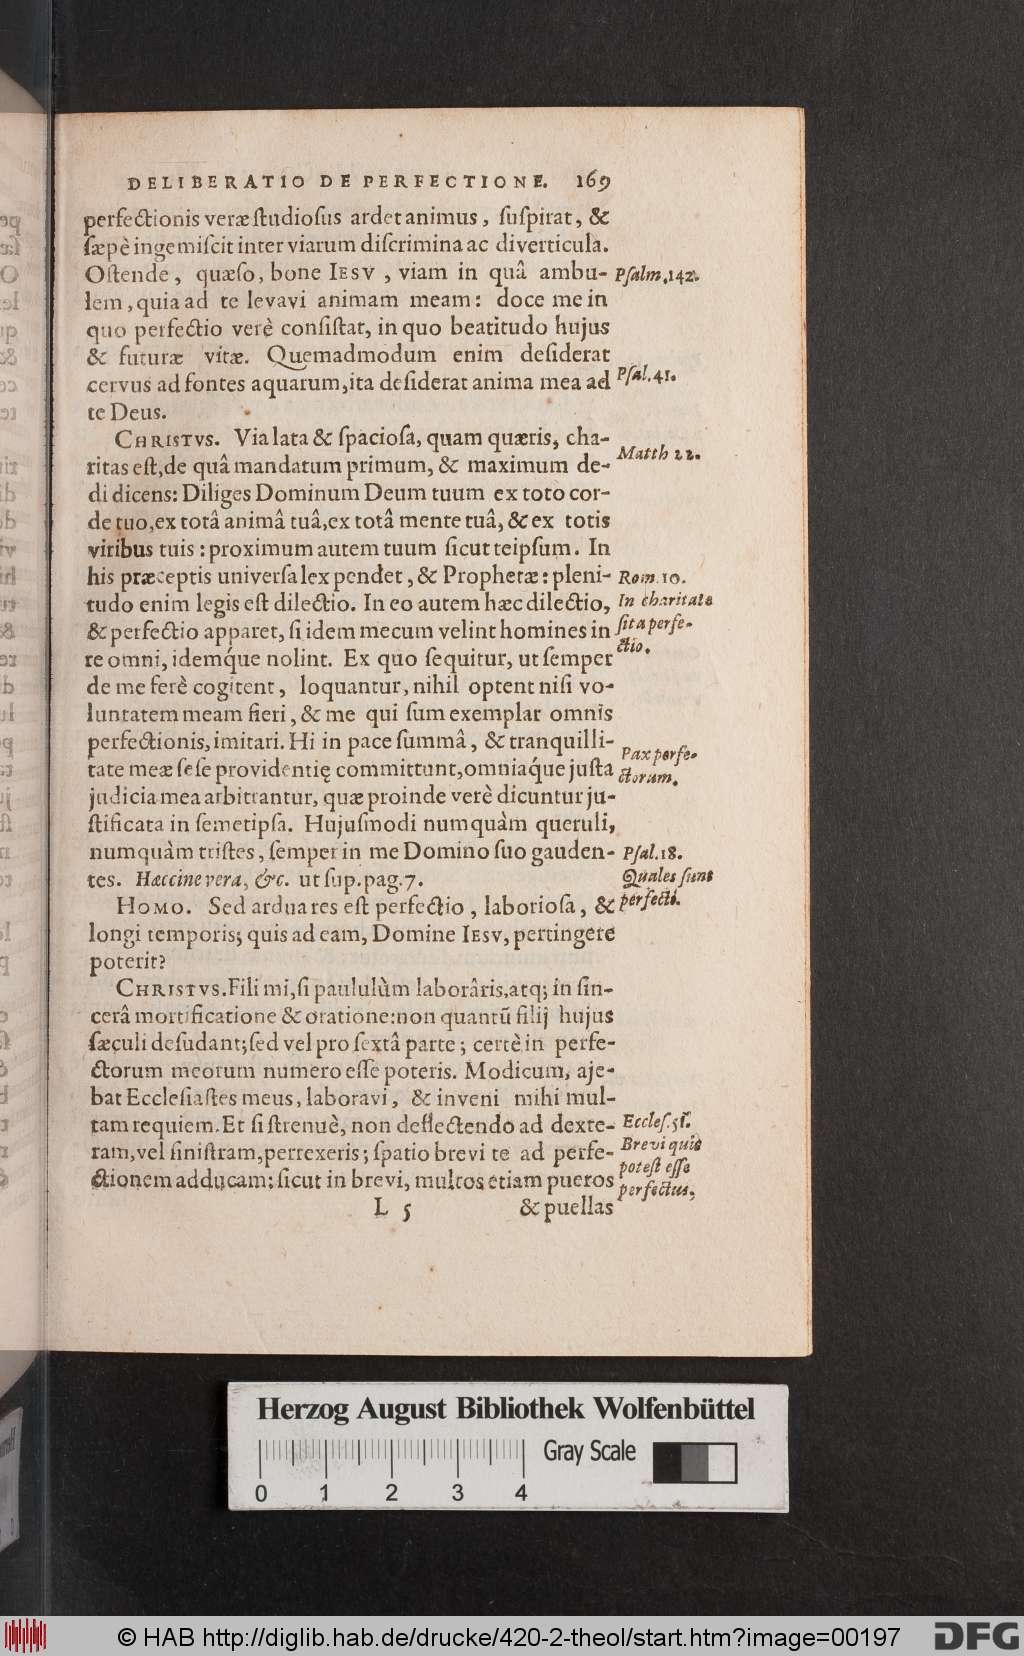 DELIBERATIO DE PERFECTIONE. 169
perfectionis veræ ſtudioſus ardet animus, ſuſpirat, &
ſæpè ingemiſcit inter viarum diſcrimina ac diverticula.
Oſtende, quæſo, bone IESV, viam in quâ ambu- Pſalm. 142.
lem, quia ad te levavi animam meam: doce me in
quo perfectio verè conſiſtat, in quo beatitudo hujus
& futuræ vitæ. Quemadmodum enim deſiderat
cervus ad fontes aquarum, ita deſiderat anima mea ad Pſal. 41.
te Deus.
CHRISTVS. Via lata & ſpacioſa, quam quæris, cha-
ritas eſt, de quâ mandatum primum, & maximum de- Matth 22.
di dicens: Diliges Dominum Deum tuum ex toto cor-
de tuo, ex totâ animâ tuâ, ex totâ mente tuâ, & ex totis
viribus tuis: proximum autem tuum ſicut teipſum. In
his præceptis univerſa lex pendet, & Prophetæ: pleni- Rom. 10.
tudo enim legis eſt dilectio. In eo autem hæc dilectio, In charitate
& perfectio apparet, ſi idem mecum velint homines in ſita perfe-
re omni, idemq́ue nolint. Ex quo ſequitur, ut ſemper ctio.
de me ferè cogitent, loquantur, nihil optent niſi vo-
luntatem meam fieri, & me qui ſum exemplar omnis
perfectionis, imitari. Hi in pace ſummâ, & tranquilli- Pax perfe-
tate meæ ſeſe providentię committunt, omniaq́ue juſta ctorum.
judicia mea arbitrantur, quæ proinde verè dicuntur ju-
ſtificata in ſemetipſa. Hujuſmodi numquàm queruli,
numquàm triſtes, ſemper in me Domino ſuo gauden- Pſal. 18.
tes. Hæccine vera, &c. ut ſup. pag. 7. Quales ſunt
HOMO. Sed ardua res eſt perfectio, laborioſa, & perfecti.
longi temporis; quis ad eam, Domine IESV, pertingere
poterit?
CHRISTVS. Fili mi, ſi paululùm laborâris, atq; in ſin-
cerâ mortificatione & oratione: non quantũ filij hujus
ſæculi deſudant; ſed vel pro ſextâ parte; certè in perfe-
ctorum meorum numero eſſe poteris. Modicum, aje-
bat Eccleſiaſtes meus, laboravi, & inveni mihi mul-
tam requiem. Et ſi ſtrenuè, non deflectendo ad dexte- Eccleſ. 51.
ram, vel ſiniſtram, perrexeris; ſpatio brevi te ad perfe- Brevi quis
ctionem adducam: ſicut in brevi, multos etiam pueros poteſt eſſe
perfectus,
L 5 & puellas
Herzog August Bibliothek Wolfenbüttel
Gray Scale
0 1 2 3 4
© HAB http://diglib.hab.de/drucke/420-2-theol/start.htm?image=00197
DFG